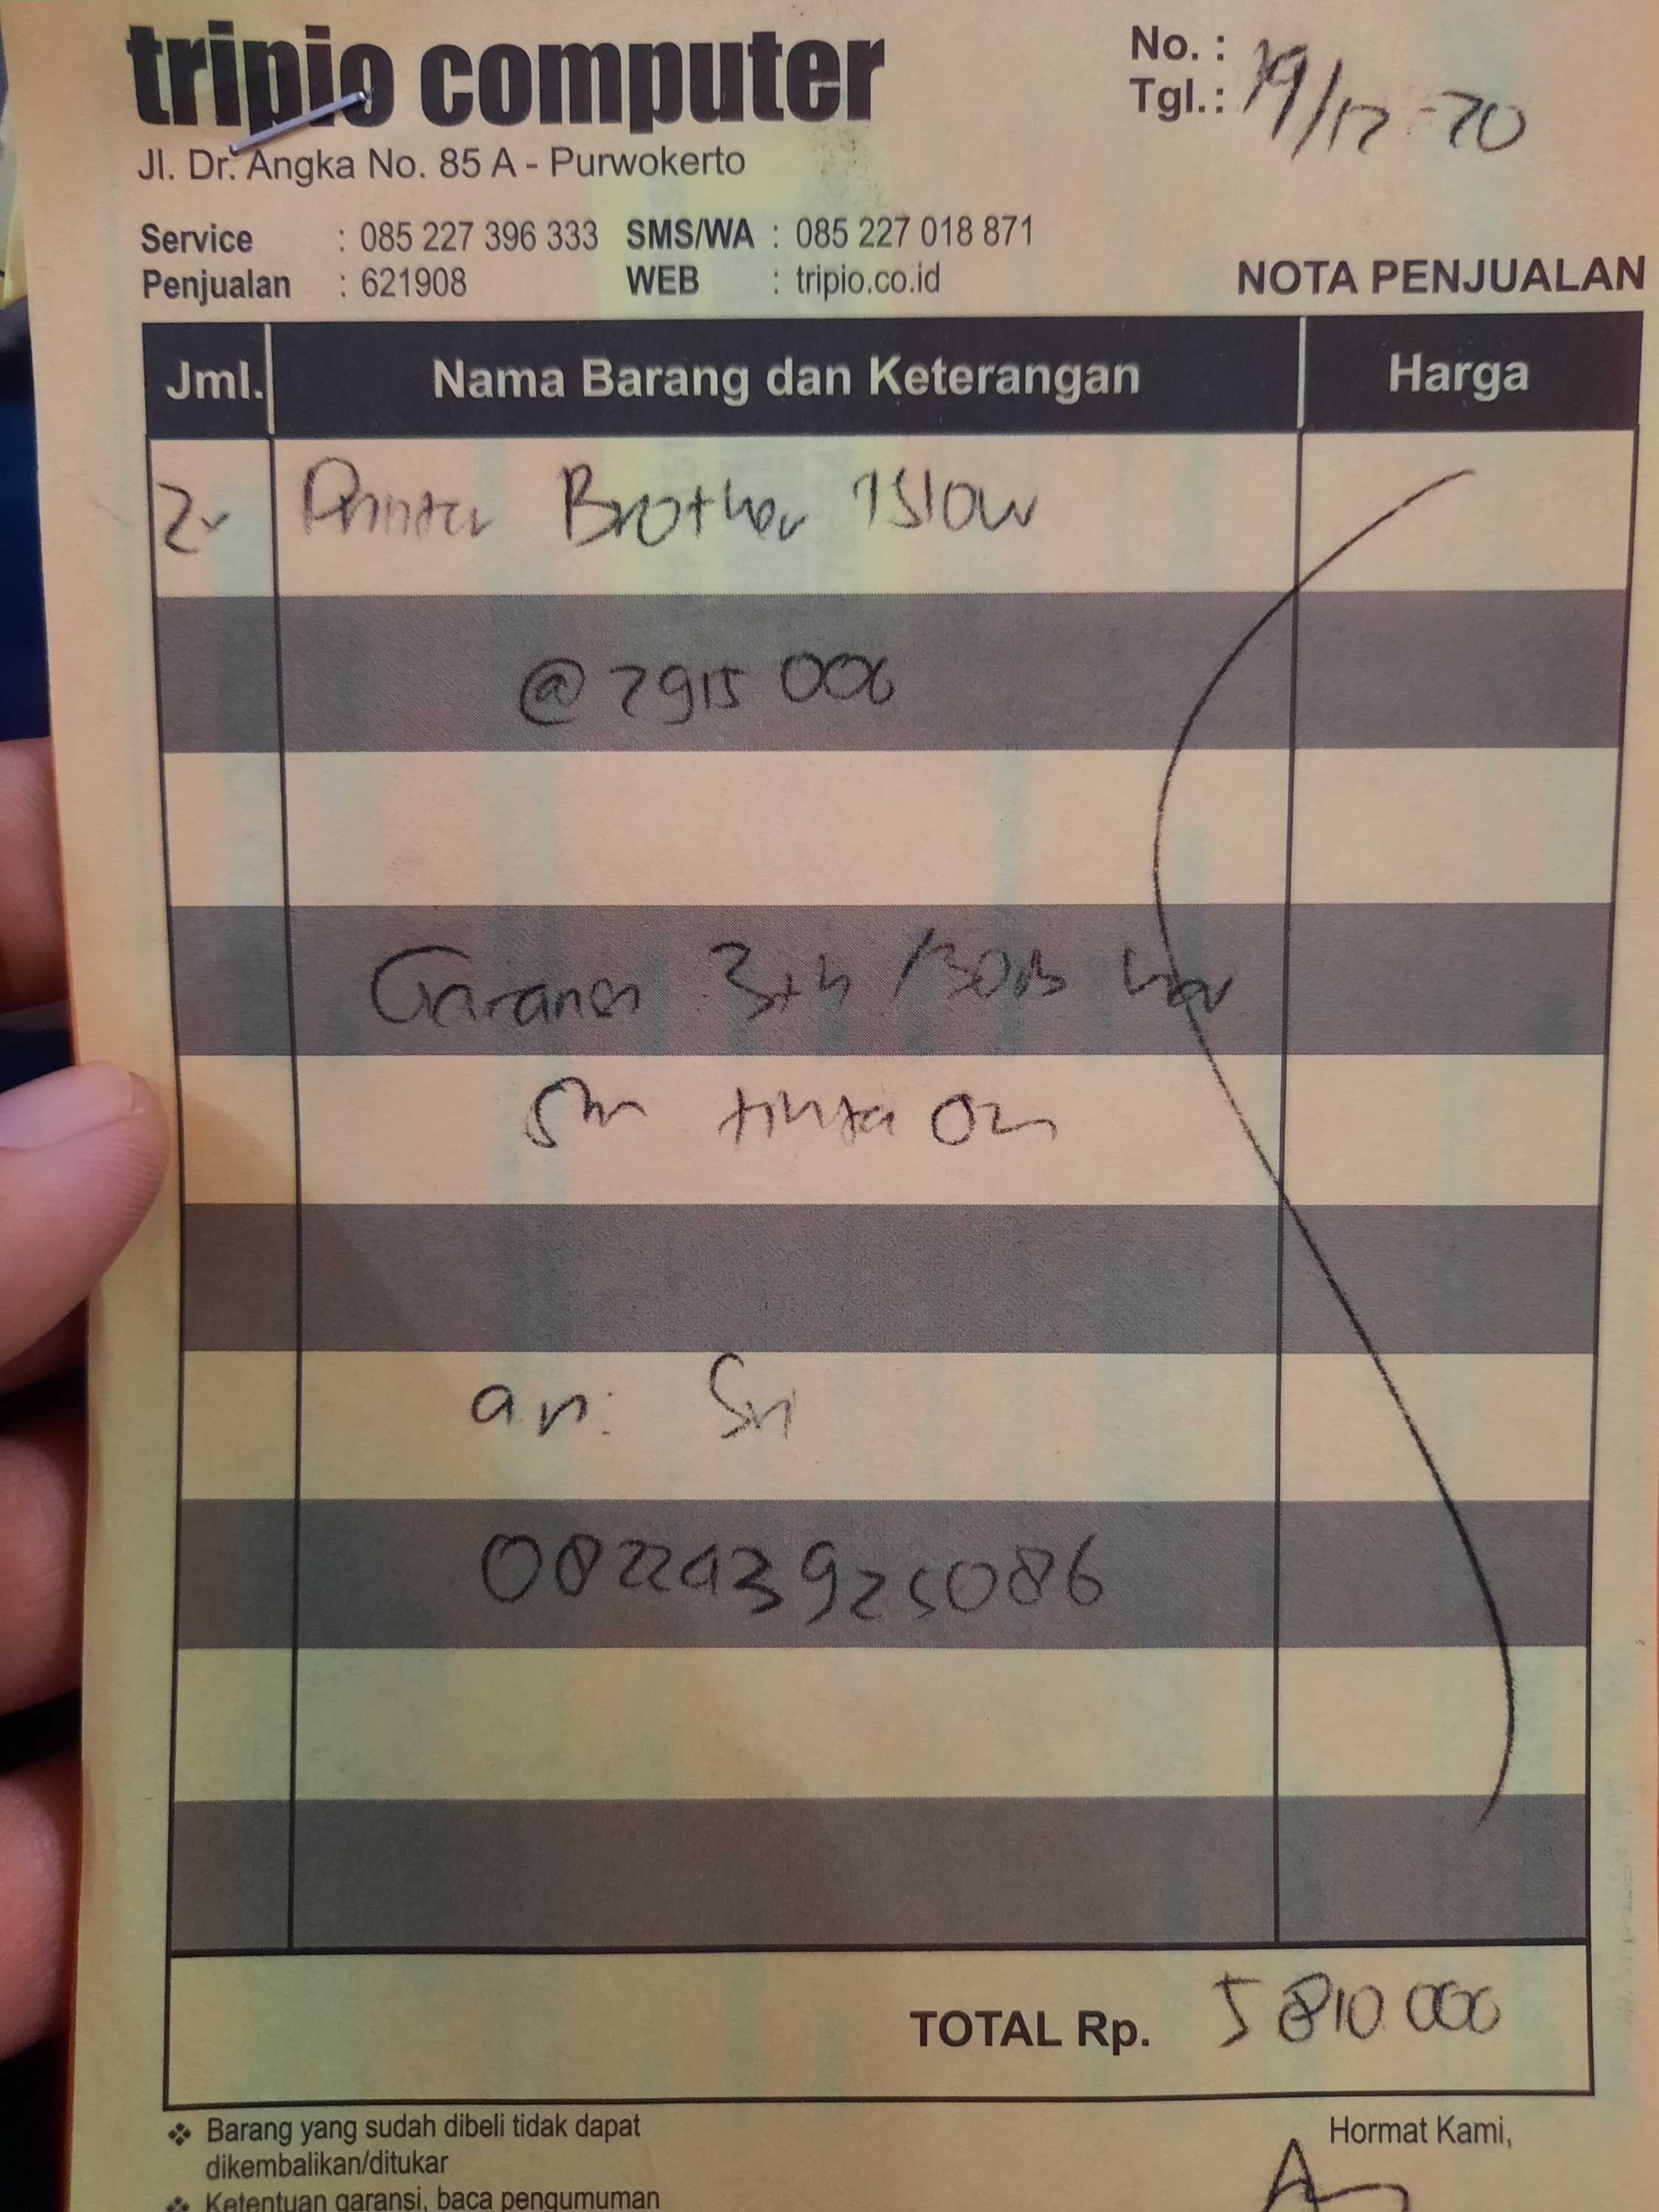 tripio computer
Jl. Dr. Angka No. 85 A - Purwokerto
No. :
Tgl.: 19/12-20
Service : 085 227 396 333 SMS/WA : 085 227 018 871
Penjualan : 621908 WEB : tripio.co.id
NOTA PENJUALAN
Jml. Nama Barang dan Keterangan Harga
2 Printer Brother T510w
@ 2915 000
Garansi 3th
tinta ori
an: Sri
082243925086
TOTAL Rp. 5810 000
❖ Barang yang sudah dibeli tidak dapat
dikembalikan/ditukar
❖ Ketentuan garansi, baca pengumuman
Hormat Kami,